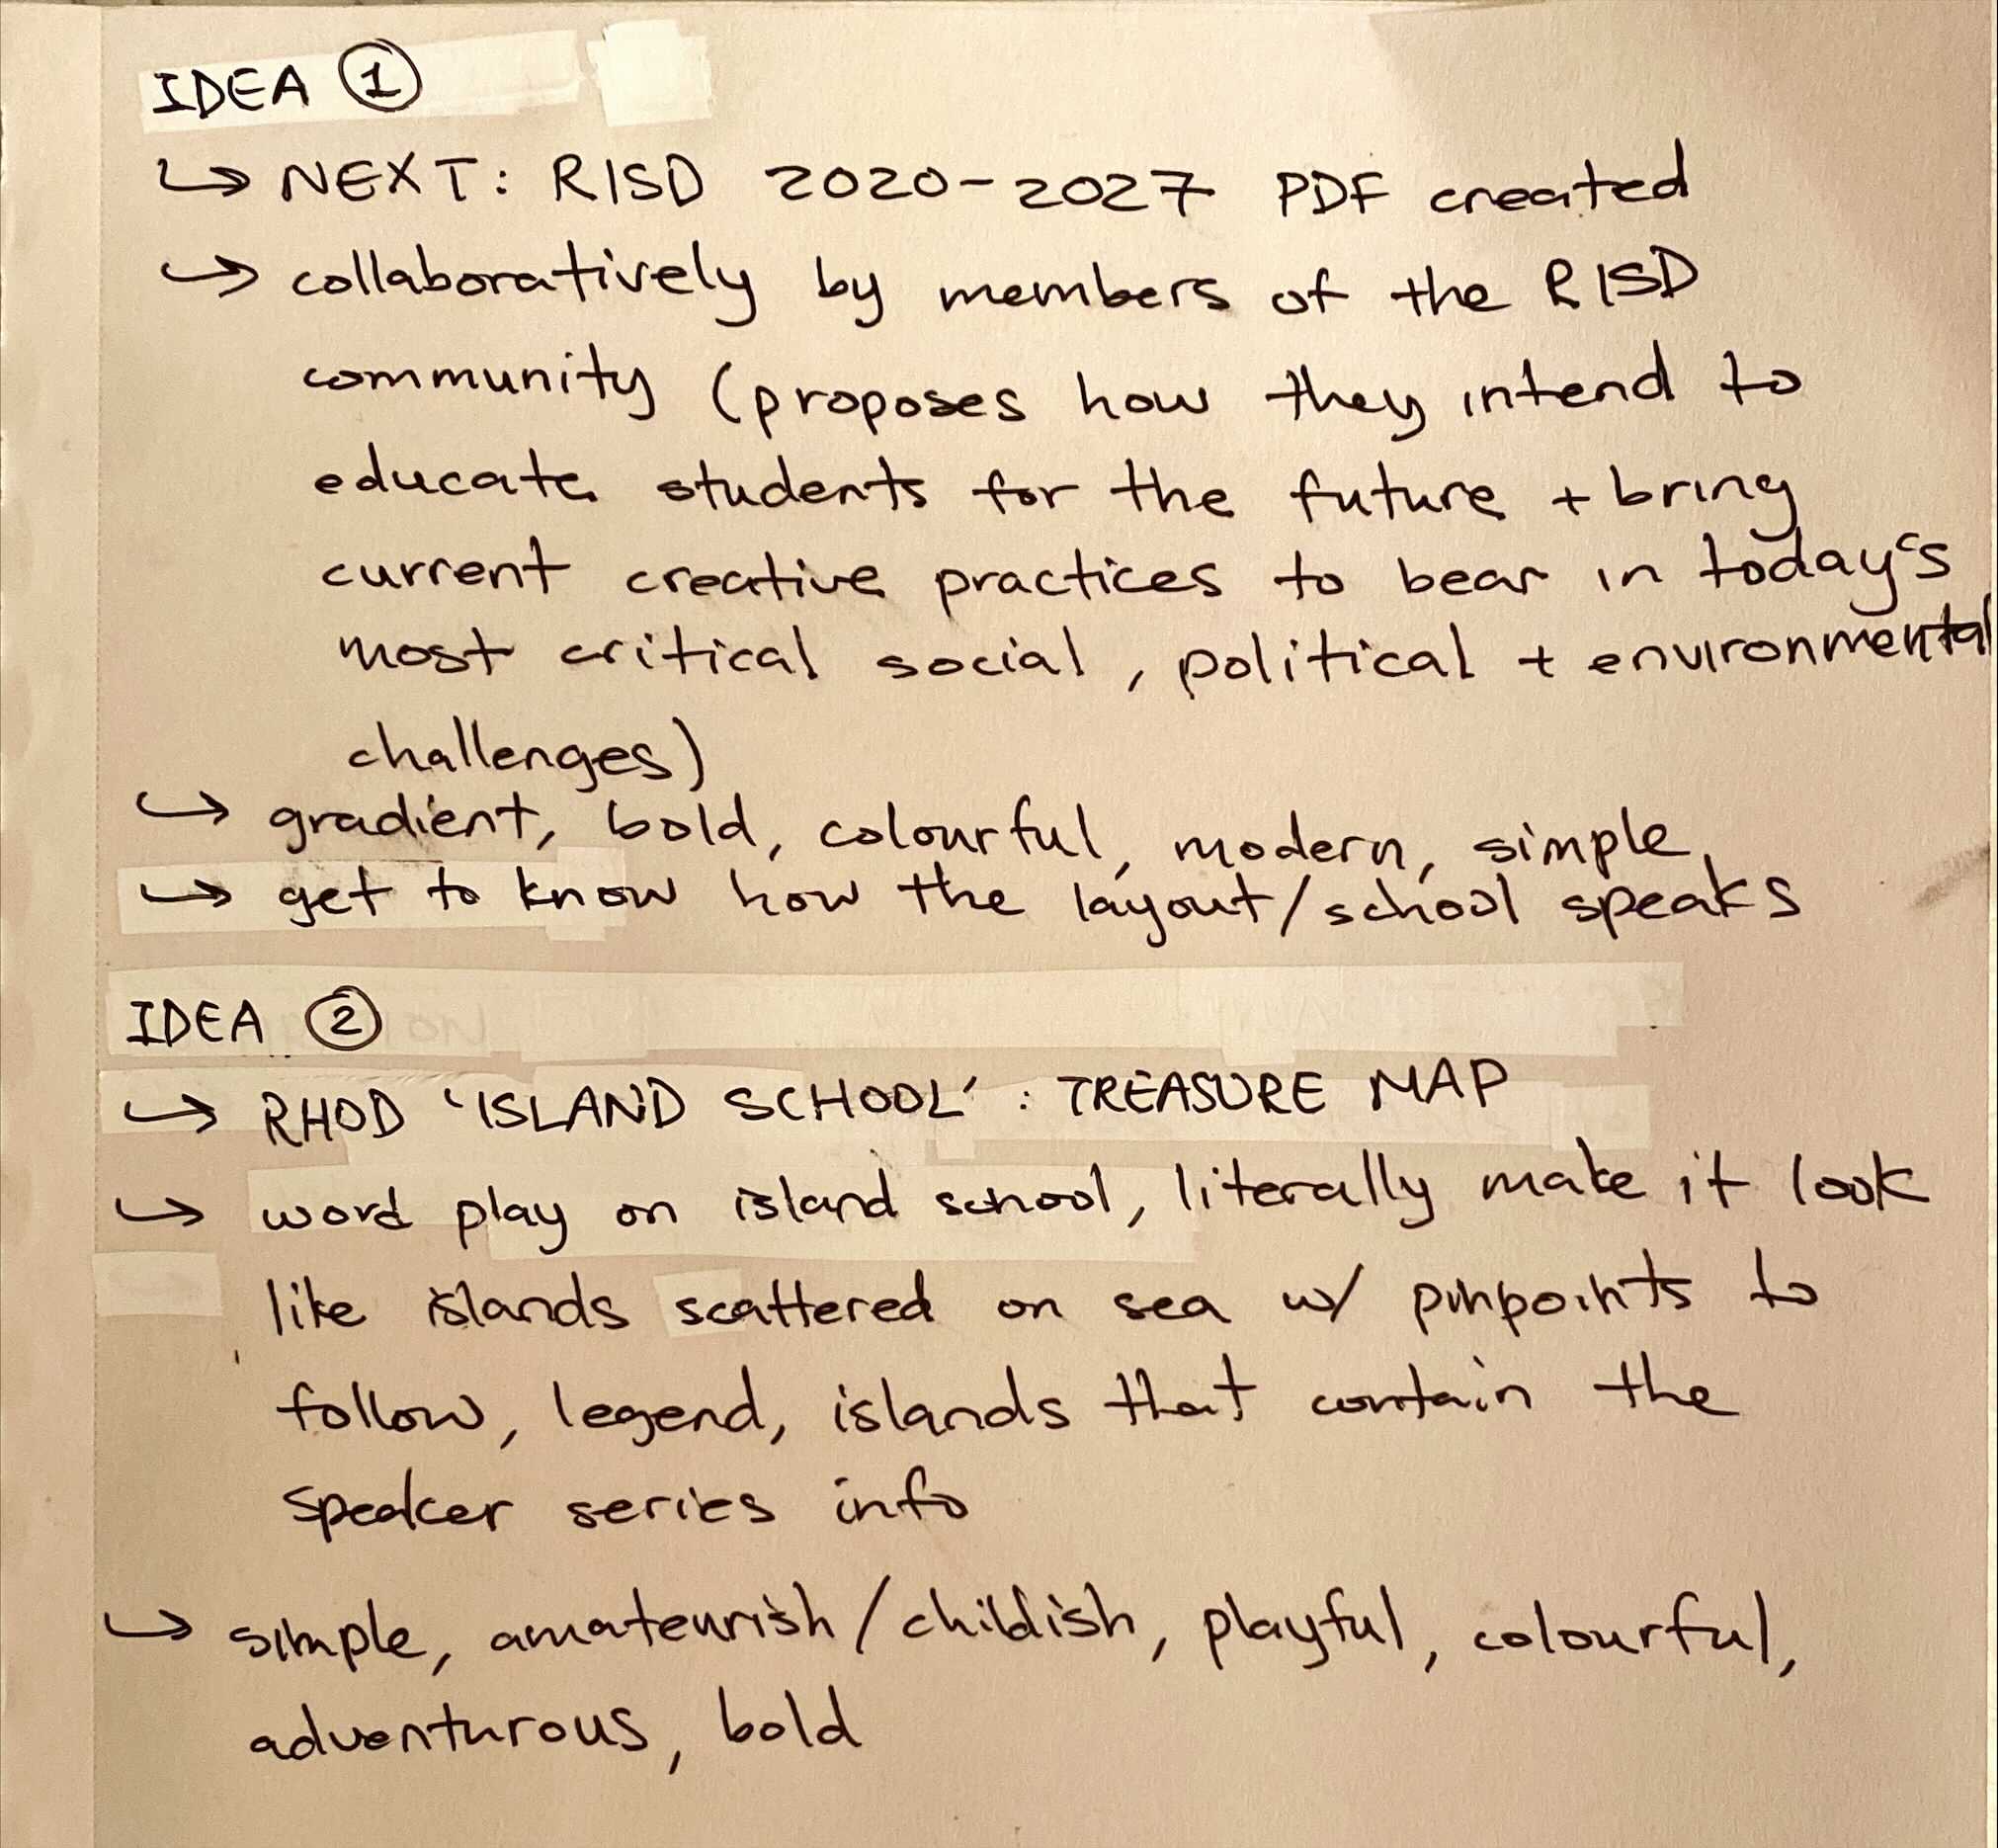 IDEA ①
↳ NEXT: RISD 2020-2027 PDF created
↳ collaboratively by members of the RISD
community (proposes how they intend to
educate students for the future + bring
current creative practices to bear in today's
most critical social, political + environmental
challenges)
↳ gradient, bold, colourful, modern, simple,
↳ get to know how the layout/school speaks
IDEA ②
↳ RHOD 'ISLAND SCHOOL' : TREASURE MAP
↳ word play on island school, literally make it look
like islands scattered on sea w/ pinpoints to
follow, legend, islands that contain the
speaker series info
↳ simple, amateurish/childish, playful, colourful,
adventurous, bold